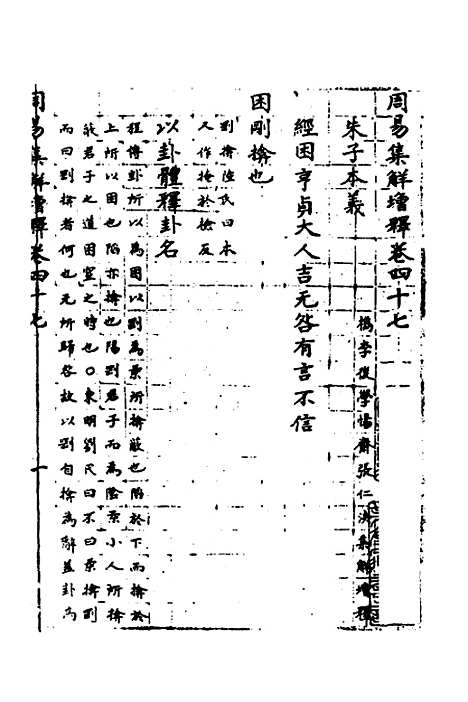 周易集解增釋卷四十七
朱子本義
檇李後學愓齋張仁浹集解增釋
經困亨貞大人吉无咎有言不信
困剛揜也
剛揜陸氏曰本
人作掩於檢反
以卦體釋卦名
程傳卦所以爲困以剛爲柔所揜蔽也陷於下而揜於
上所以困也陷亦揜也陽剛君子而爲陰柔小人所揜
蔽君子之道困窒之時也〇東明劉氏曰不曰柔揜剛
而曰剛揜者何也无所歸咎故以剛自揜爲辭蓋卦爲
周易集解增釋卷四十七
一